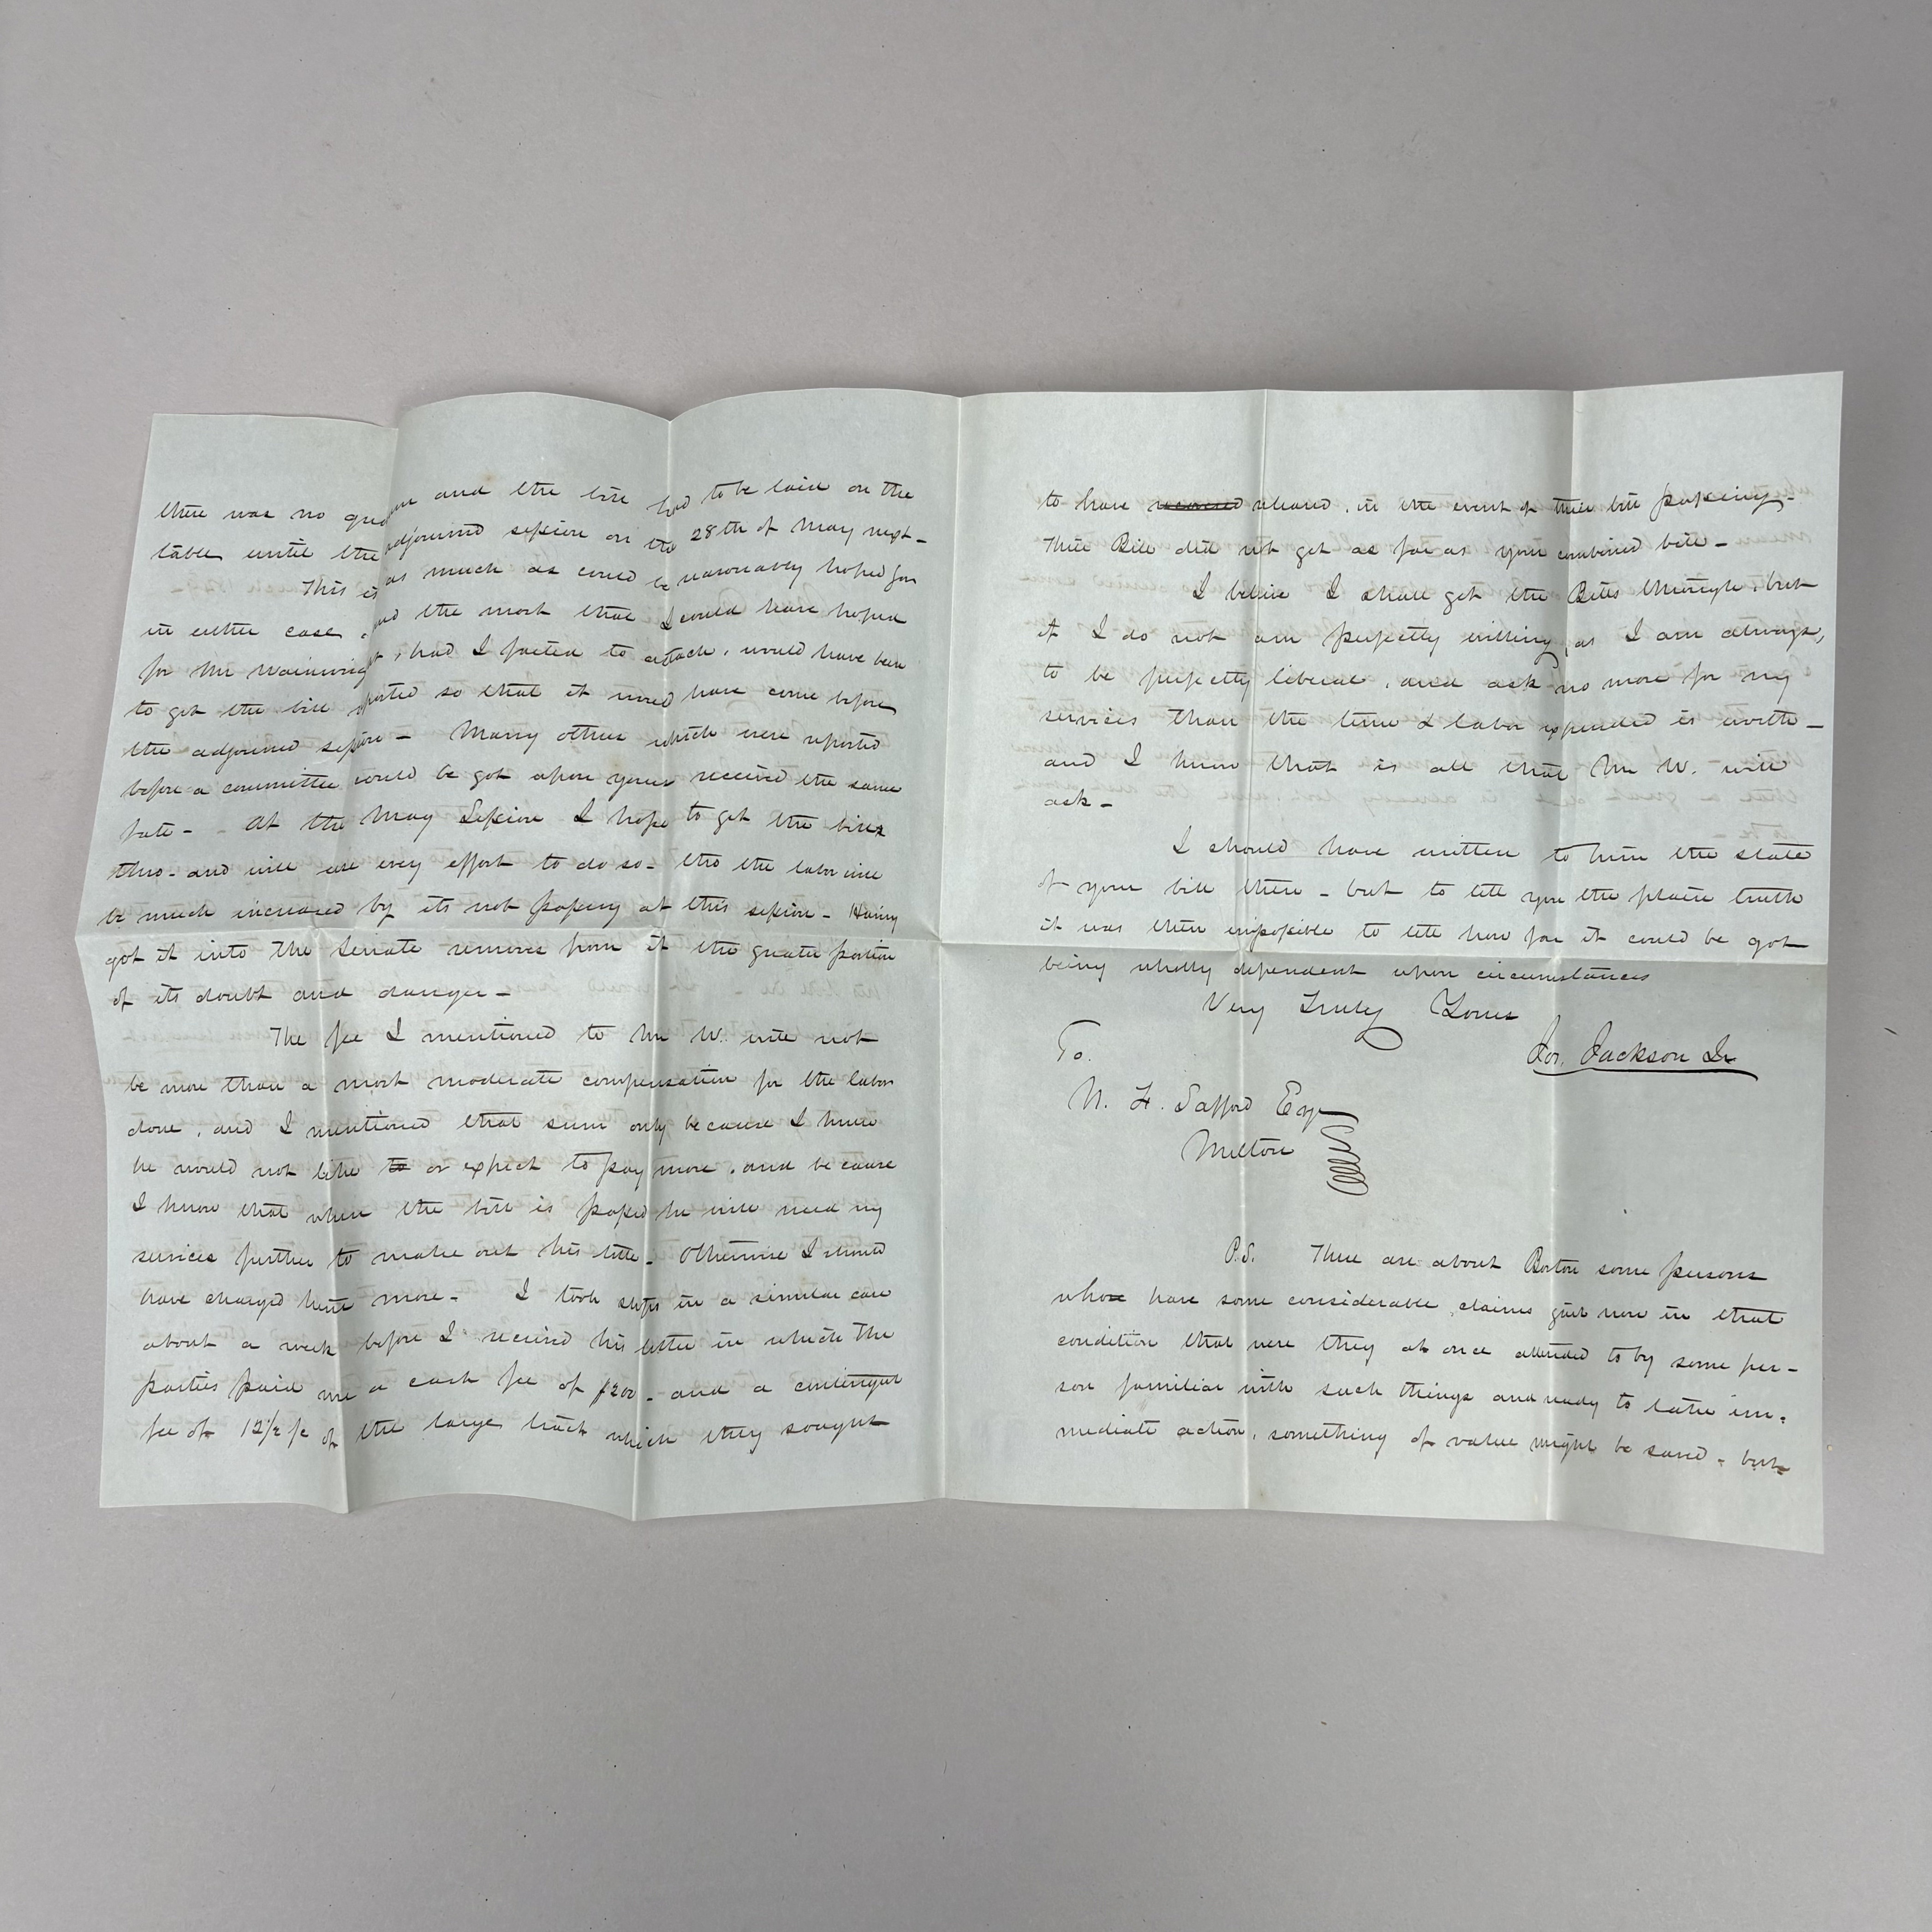 there was no quorum and the bill had to be laid on the
table until the adjourned session on the 28th of May next -
This is as much as could be reasonably hoped for
in either case, and the most that I could have hoped
for Mr Wainwright, had I failed to attach, would have been
to get the bill reported so that it would have come before
the adjourned session - Many others which were reported
before a committee could be got upon yours received the same
fate - At the May Session I hope to get the bills
thro - and will use every effort to do so - tho the labor will
be much increased by its not passing at this session - Having
got it into the Senate removes from it the greater portion
of its doubt and danger -
The fee I mentioned to Mr W. will not
be more than a most moderate compensation for the labor
done, and I mentioned that sum only because I knew
he would not like to or expect to pay more, and because
I know that when the bill is passed he will need my
services further to make out his title - Otherwise I should
have charged him more - I took steps in a similar case
about a week before I received his letter in which the
parties paid me a cash fee of $200 - and a contingent
fee of 12½ pc of the large tract which they sought
to have released, in the event of their bill passing -
Their Bill did not get as far as your combined bill -
I believe I shall get the Bills through, but
if I do not am perfectly willing, as I am always,
to be perfectly liberal, and ask no more for my
services than the time & labor expended is worth -
and I know that is all that Mr W. will
ask -
I should have written to him the state
of your bill then - but to tell you the plain truth
it was then impossible to tell how far it could be got
being wholly dependent upon circumstances
Very Truly Yours
Jos. Jackson Jr
To.
N. F. Safford Esqr
Milton
P.S. There are about Boston some persons
who have some considerable claims just now in that
condition that were they at once attended to by some per-
son familiar with such things and ready to take im-
mediate action, something of value might be saved - but